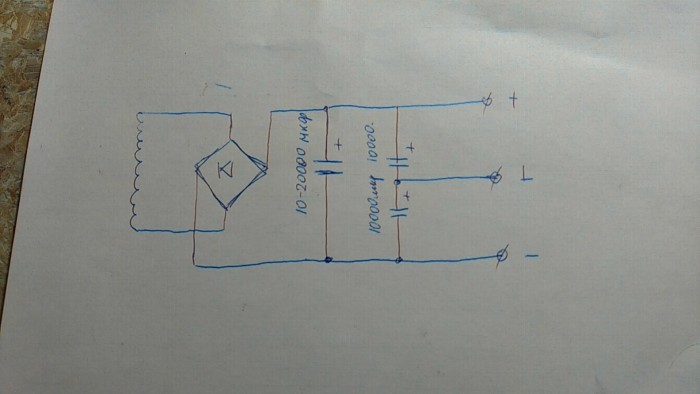 10-20000 мкф
+
10000мкф 10000.
+
+
+
-